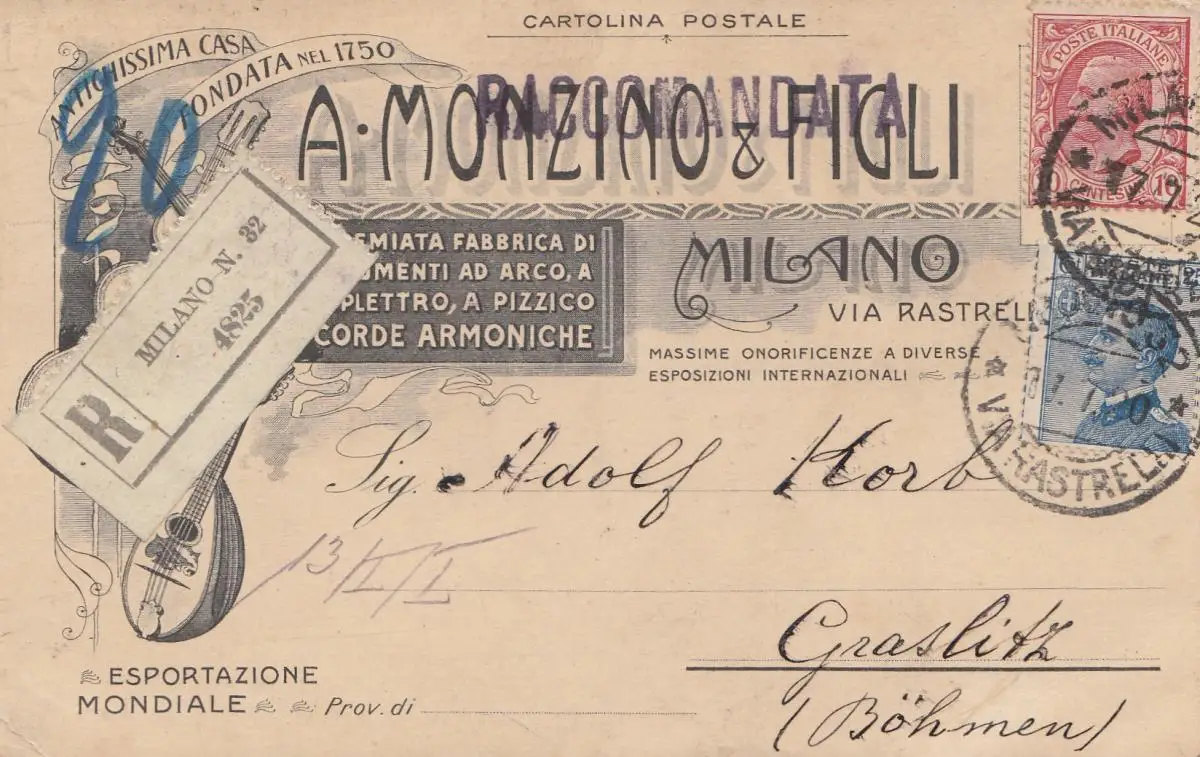 CARTOLINA POSTALE
ANTICHISSIMA CASA
FONDATA NEL 1750
A. MONZINO & FIGLI
RACCOMANDATA
POSTE ITALIANE
90
EMIATA FABBRICA DI
UMENTI AD ARCO, A
PLETTRO, A PIZZICO
CORDE ARMONICHE
MILANO
VIA RASTREL
MASSIME ONORIFICENZE A DIVERSE
ESPOSIZIONI INTERNAZIONALI
MILANO - N. 32
4825
R
VIA RASTRELLI
Sig. Adolf Korb
13/II/I
Graslitz
(Böhmen)
ESPORTAZIONE
MONDIALE
Prov. di